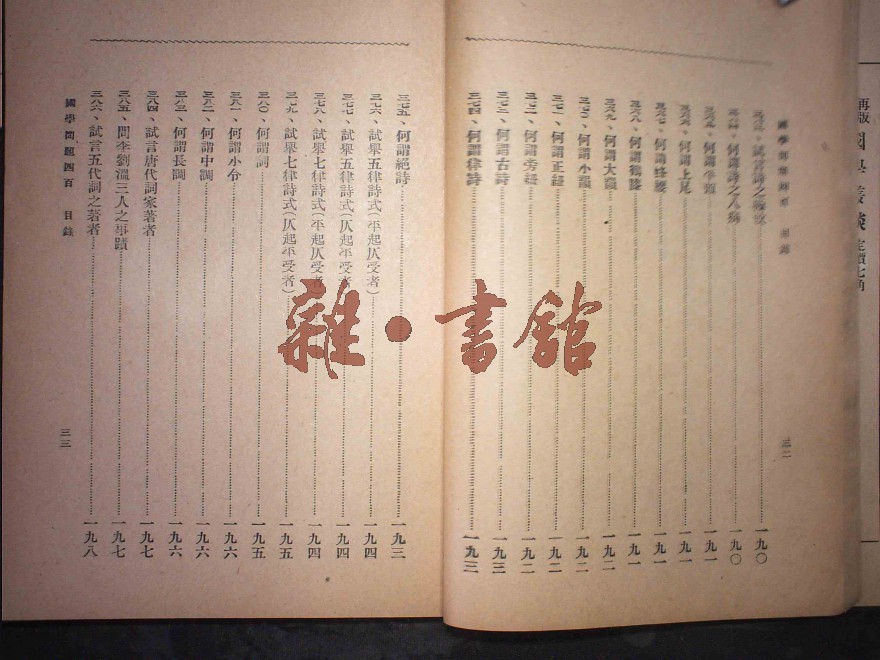 再版 國學 談 定價七角
三二
三六三、試言詩之 一九〇
三六四、何謂詩之八病 一九〇
三六五、何謂平頭 一九一
三六六、何謂上尾 一九一
三六七、何謂蜂腰 一九一
三六八、何謂鶴膝 一九一
三六九、何謂大韻 一九二
三七〇、何謂小韻 一九二
三七一、何謂正紐 一九二
三七二、何謂旁紐 一九二
三七三、何謂古詩 一九三
三七四、何謂律詩 一九三
三七五、何謂絕詩 一九三
三七六、試舉五律詩式(平起仄受者) 一九四
三七七、試舉五律詩式(仄起平受者) 一九四
三七八、試舉七律詩式(平起仄受者) 一九四
三七九、試舉七律詩式(仄起平受者) 一九五
三八〇、何謂詞 一九五
三八一、何謂小令 一九六
三八二、何謂中調 一九六
三八三、何謂長調 一九六
三八四、試言唐代詞家著者 一九七
三八五、問李劉溫三人之事蹟 一九七
三八六、試言五代詞之著者 一九八
國學問題四百 目錄 三三
雜·書館